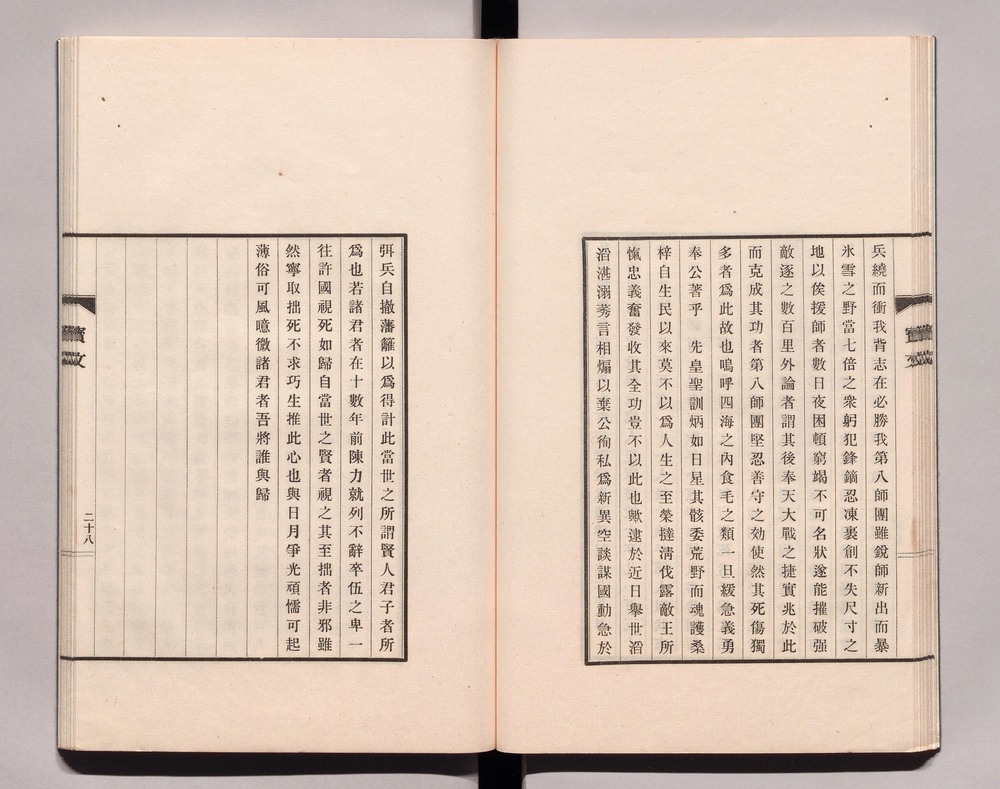 兵繞而衝我背志在必勝我第八師團雖銳師新出而暴
氷雪之野當七倍之衆躬犯鋒鏑忍凍裹創不失尺寸之
地以俟援師者數日夜困頓窮竭不可名狀遂能摧破强
敵逐之數百里外論者謂其後奉天大戰之捷實兆於此
而克成其功者第八師團堅忍善守之効使然其死傷獨
多者爲此故也嗚呼四海之內食毛之類一旦緩急義勇
奉公著乎　先皇聖訓炳如日星其骸委荒野而魂護桑
梓自生民以來莫不以爲人生之至榮撻淸伐露敵王所
愾忠義奮發收其全功豈不以此也歟逮於近日擧世滔
滔湛溺莠言相煽以棄公徇私爲新異空談謀國動急於
弭兵自撤藩籬以爲得計此當世之所謂賢人君子者所
爲也若諸君者在十數年前陳力就列不辭卒伍之卑一
往許國視死如歸自當世之賢者視之其至拙者非邪雖
然寧取拙死不求巧生推此心也與日月爭光頑懦可起
薄俗可風噫微諸君者吾將誰與歸
二十八